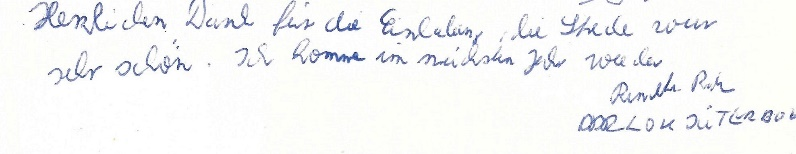 Herzlichen Dank für die Einladung, die Stede war
sehr schön. Ich komme im nächsten Jahr wieder
DDR LOK JÜTERBOG